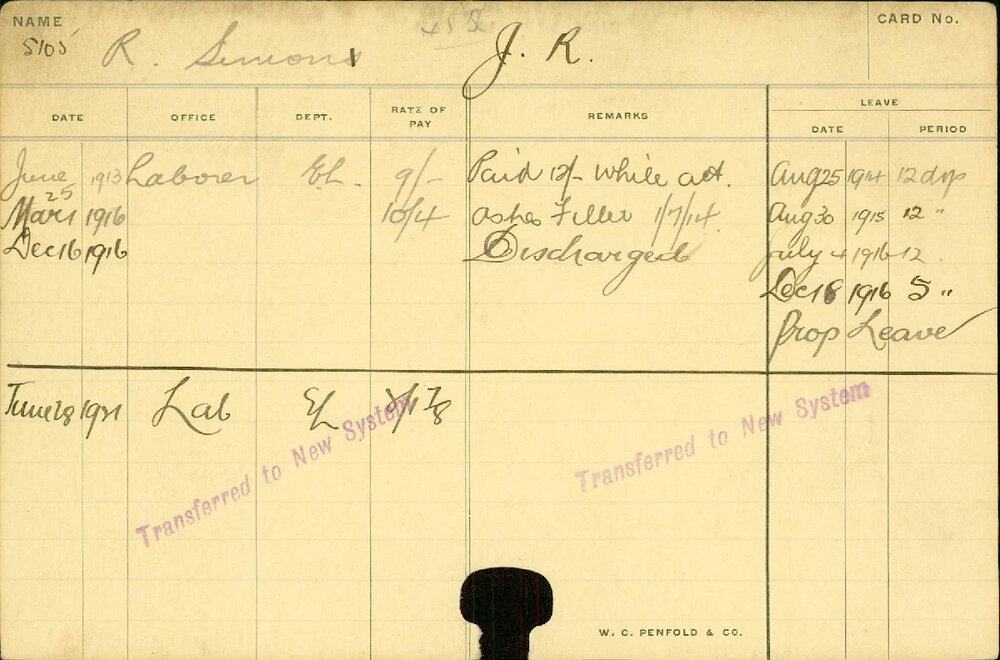 NAME
CARD No.
5105 R. Simons J. R.
DATE OFFICE DEPT. RATE OF PAY REMARKS LEAVE
DATE PERIOD
June 1913 Laborer El. 9/- Paid 12/- while act. Aug 25 1914 12 dys
25
Mar 1 1916 10/4 Ashes Filler 1/7/14. Aug 30 1915 12 "
Dec 16 1916 Discharged July 4 1916 12
Dec 18 1916 5 "
Prop Leave
June 28 1921 Lab El
Transferred to New System
Transferred to New System
W. C. PENFOLD & CO.